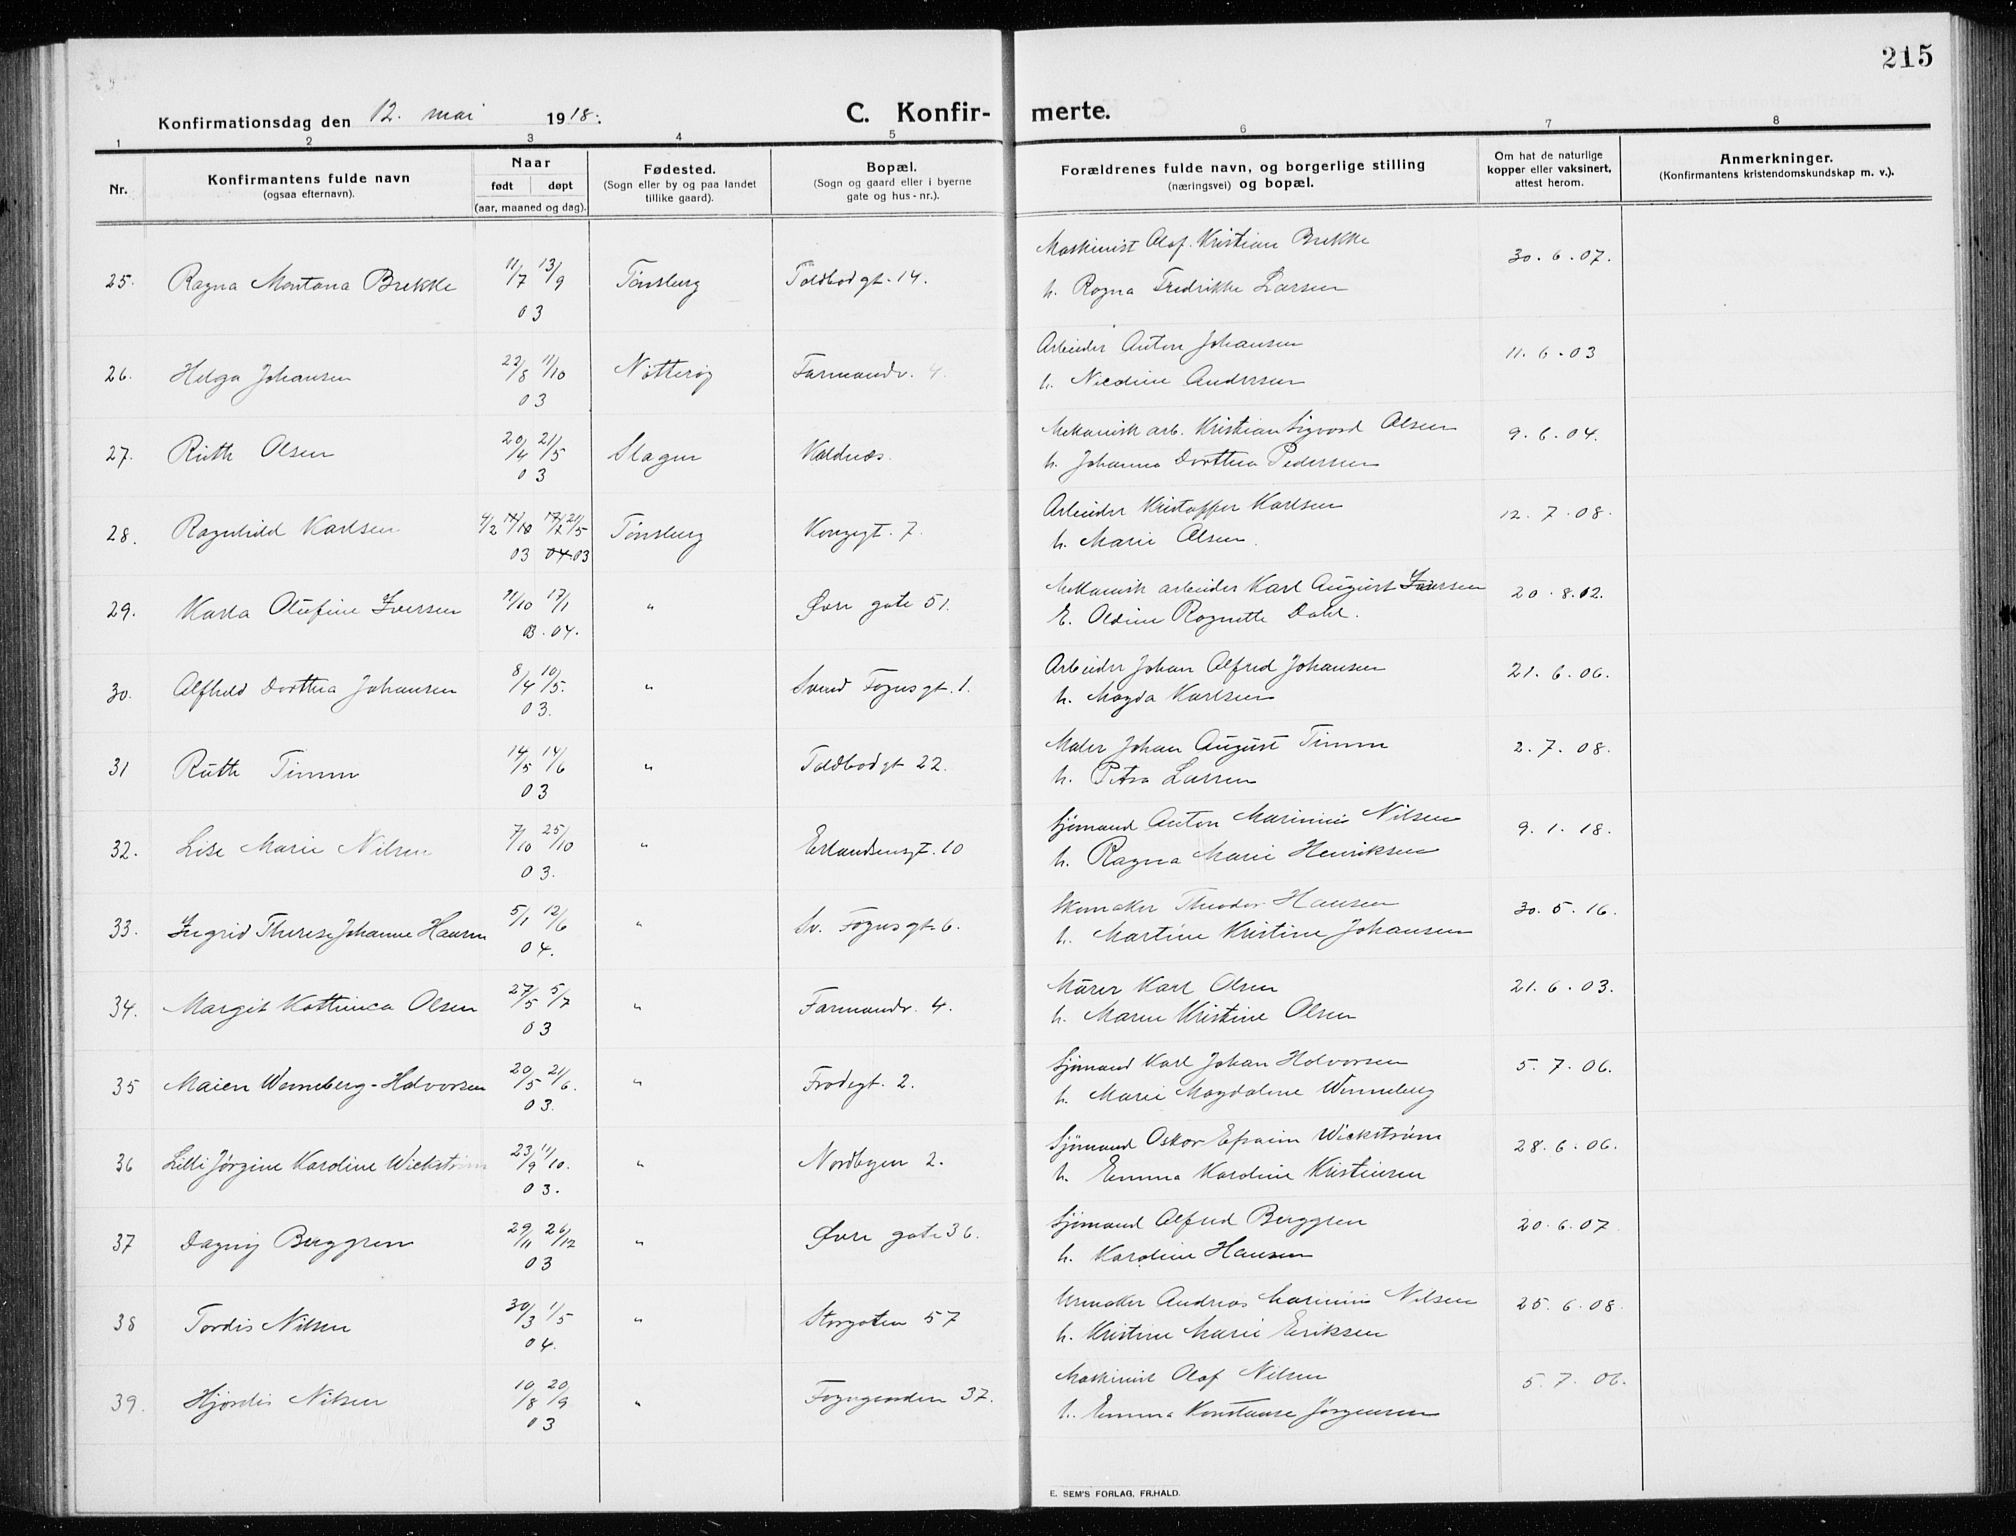 215
Konfirmationsdag den 12. mai 1918.
C. Konfir- merte.
1 2 3 4 5 6 7 8
Nr.
Konfirmantens fulde navn
(ogsaa efternavn).
Naar
født døpt
(aar, maaned og dag).
Fødested.
(Sogn eller by og paa landet
tillike gaard).
Bopæl.
(Sogn og gaard eller i byerne
gate og hus-nr.).
Forældrenes fulde navn, og borgerlige stilling
(næringsvei) og bopæl.
Om hat de naturlige
kopper eller vaksinert,
attest herom.
Anmerkninger.
(Konfirmantens kristendomskundskap m. v.).
25. Ragna Montana Brekke 11/7 13/9 03 Tønsberg Toldbodgt. 14.
Maskinist Olaf Kristian Brekke
h. Ragna Fredrikke Larsen
30.6.07.
26. Helga Johansen 22/8 11/10 03 Nøtterøy Farmandv. 4.
Arbeider Anton Johansen
h. Nicoline Andersen
11.6.03
27. Ruth Olsen 20/4 21/5 03 Slagen Kaldnæs.
Mekanisk arb. Kristian Sigvard Olsen
h. Johanna Dorthea Pedersen
9.6.04.
28. Ragnhild Karlsen 4/2 21/5 03 04 03 Tønsberg Kongegt. 7.
Arbeider Kristoffer Karlsen
h. Marie Olsen.
12.7.08.
29. Karla Olufine Iversen 11/10 17/1 03. 04. " Øvre gate 51.
Mekanisk arbeider Karl August Iversen
E. Oldine Ragnette Dahl.
20.8.02.
30. Alfhild Dorthea Johansen 8/4 10/5. 03. " Svend Foynsgt. 1.
Arbeider Johan Alfred Johansen
h. Magda Karlsen
21.6.06.
31 Ruth Timm 14/5 14/6 03 " Toldbodgt 22.
Maler Johan August Timm
h. Petra Larsen
2.7.08.
32. Lise Marie Nilsen 7/10 25/10 03. " Erlandsensgt. 10
Sjømand Anton Marinius Nilsen
h. Ragna Marie Henriksen
9.1.18.
33. Ingrid Therese Johanne Hansen 5/1 12/6 04. " Sv. Foyns gt. 6.
Skomaker Theodor Hansen
h. Martine Kristine Johansen
30.5.16.
34. Margit Kathinca Olsen 27/5 5/7 03 " Farmandv. 4.
Murer Karl Olsen
h. Maren Kristine Olsen
21.6.03.
35 Maien Wenneberg-Halvorsen 20/5 21/6. 03. " Frodegt. 2.
Sjømand Karl Johan Halvorsen
h. Marie Magdalene Wenneberg
5.7.06.
36 Lilli Jørgine Karoline Wickstrøm 23/9 11/10. 03. " Nordbyen 2.
Sjømand Oskar Efraim Wickstrøm
h. Emma Karoline Kristiansen
28.6.06.
37 Dagny Berggren 29/11 26/12 03 " Øvre gate 36.
Sjømand Alfred Berggren
h. Karoline Hansen
20.6.07.
38 Tordis Nilsen 30/3 1/5 04. " Storgaten 57
Urmaker Andreas Marinius Nilsen
h. Kristine Marie Eriksen
25.6.08.
39. Hjørdis Nilsen 10/8 20/9 03 " Foyngaarden 37.
Maskinist Olaf Nilsen
h. Emma Konstanse Jørgensen
5.7.06.
E. SEM'S FORLAG, FR.HALD.